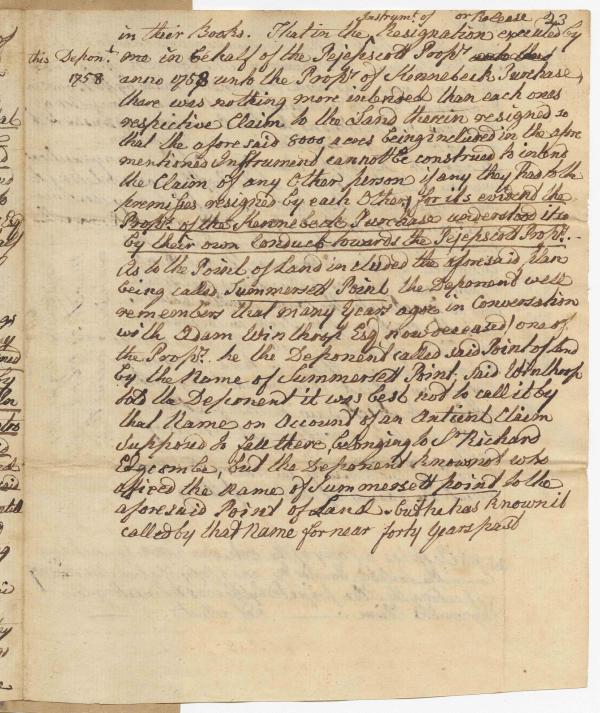 23
Instrumt. of or Release
in their Books. That in the Resignation executed by
this Depont. me in behalf of the Pejepscott Propr.
1758 anno 1758 unto the Propr. of Kennebeck Purchase,
there was nothing more intended than each ones
respective Claim to the Land therein resigned so
that the afore said 8000 acres being included in the afore
mentioned Instrumend cannot be construed to intend
the Claim of any Other person if any they had to the
premises resigned by each Other, for it is evident the
Propr. of the Kennebeck Purchase understood it so
by their own Conduct towards the Pejepscott Propr. -
As to the Point of Land included the aforesaid Plan
being called Summersett Point the Deponend well
remembers that many Years agoe in Conversation
with Adam Winthrop Esq now deceased one of
the Propr. he the Deponent called said Point of land
by the Name of Summersett Point; Said Winthrop
told the Deponent it was best not to call it by
that Name on Account of an Antient Claim
supposed to fall there, belonging to Sr. Richard
Edgcombe, but the Deponent knows not who
afficed the Name of Summersett point to the
aforesaid Point of Land but he has known it
called by that Name for near forty Years past